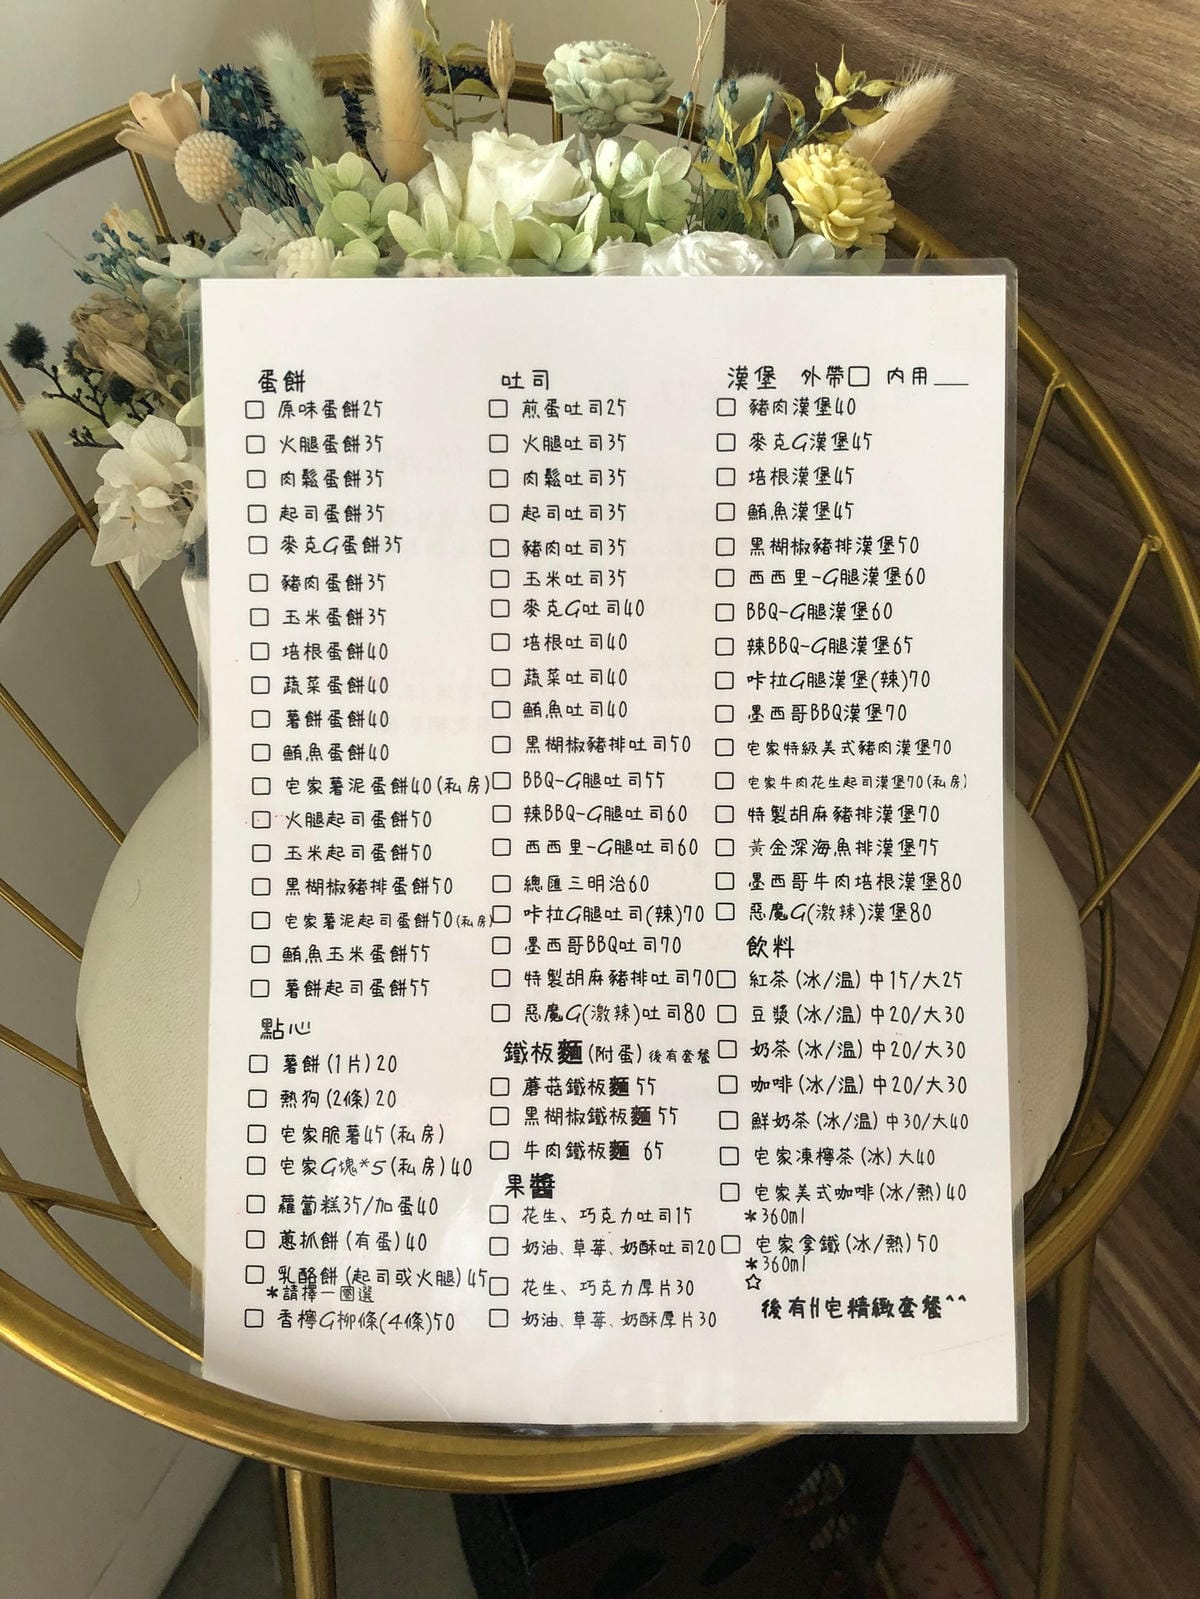 蛋餅
原味蛋餅25
火腿蛋餅35
肉鬆蛋餅35
起司蛋餅35
麥克G蛋餅35
豬肉蛋餅35
玉米蛋餅35
培根蛋餅40
蔬菜蛋餅40
薯餅蛋餅40
鮪魚蛋餅40
宅家薯泥蛋餅40(私房)
火腿起司蛋餅50
玉米起司蛋餅50
黑胡椒豬排蛋餅50
宅家薯泥起司蛋餅50(私房)
鮪魚玉米蛋餅55
薯餅起司蛋餅55
點心
薯餅(1片)20
熱狗(2條)20
宅家脆薯45(私房)
宅家G塊*5(私房)40
蘿蔔糕35/加蛋40
蔥抓餅(有蛋)40
乳酪餅(起司或火腿)45
*請擇一圈選
香檸G柳條(4條)50
吐司
煎蛋吐司25
火腿吐司35
肉鬆吐司35
起司吐司35
豬肉吐司35
玉米吐司35
麥克G吐司40
培根吐司40
蔬菜吐司40
鮪魚吐司40
黑胡椒豬排吐司50
BBQ-G腿吐司55
辣BBQ-G腿吐司60
西西里-G腿吐司60
總匯三明治60
咔拉G腿吐司(辣)70
墨西哥BBQ吐司70
特製胡麻豬排吐司70
惡魔G(激辣)吐司80
鐵板麵(附蛋)後有套餐
蘑菇鐵板麵55
黑胡椒鐵板麵55
牛肉鐵板麵 65
果醬
花生、巧克力吐司15
奶油、草莓、奶酥吐司20
花生、巧克力厚片30
奶油、草莓、奶酥厚片30
漢堡 外帶□ 內用___
豬肉漢堡40
麥克G漢堡45
培根漢堡45
鮪魚漢堡45
黑胡椒豬排漢堡50
西西里-G腿漢堡60
BBQ-G腿漢堡60
辣BBQ-G腿漢堡65
咔拉G腿漢堡(辣)70
墨西哥BBQ漢堡70
宅家特級美式豬肉漢堡70
宅家牛肉花生起司漢堡70(私房)
特製胡麻豬排漢堡70
黃金深海魚排漢堡75
墨西哥牛肉培根漢堡80
惡魔G(激辣)漢堡80
飲料
紅茶(冰/溫)中15/大25
豆漿(冰/溫)中20/大30
奶茶(冰/溫)中20/大30
咖啡(冰/溫)中20/大30
鮮奶茶(冰/溫)中30/大40
宅家凍檸茶(冰)大40
宅家美式咖啡(冰/熱)40
*360ml
宅家拿鐵(冰/熱)50
*360ml
☆
後有H宅精緻套餐^^